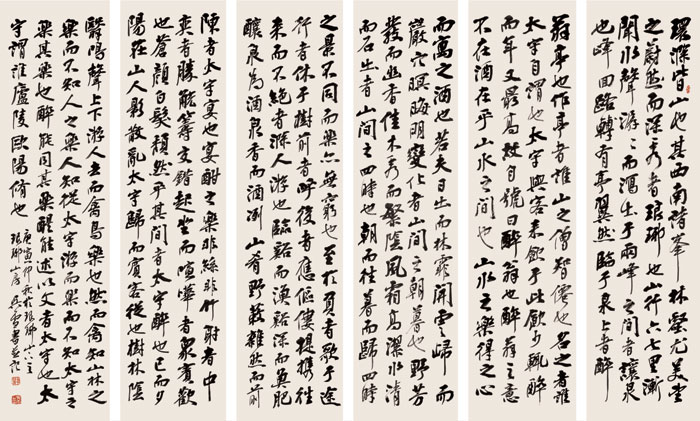 環滁皆山也其西南諸峯林壑尤美望
之蔚然而深秀者琅琊也山行六七里漸
聞水聲潺潺而瀉出于兩峰之間者讓泉
也峰回路轉有亭翼然臨于泉上者醉
翁亭也作亭者誰山之僧智僊也名之者誰
太守自謂也太守與客來飲于此飲少輒醉
而年又最高故自號曰醉翁也醉翁之意
不在酒在乎山水之間也山水之樂得之心
而寓之酒也若夫日出而林霏開雲歸而
巖穴暝晦明變化者山間之朝暮也野芳
發而幽香佳木秀而繁陰風霜高潔水清
而石出者山間之四時也朝而往暮而歸四時
之景不同而樂亦無窮也至於負者歌于途
行者休于樹前者呼後者應傴僂提攜往
來而不絕者滁人游也臨谿而漁谿深而魚肥
釀泉為酒泉香而酒洌山肴野蔌雜然而前
陳者太守宴也宴酣之樂非絲非竹射者中
奕者勝觥籌交錯起坐而諠譁者眾賓歡
也蒼顏白髮頹然乎其間太守醉也已而夕
陽在山人影散亂太守歸而賓客從也樹林陰
翳鳴聲上下游人去而禽鳥樂也然而禽知山林之
樂而不知人之樂人知從太守游而樂而不知太守之
樂其樂也醉能同其樂醒能述以文者太守也太
守謂誰廬陵歐陽脩也
庚寅